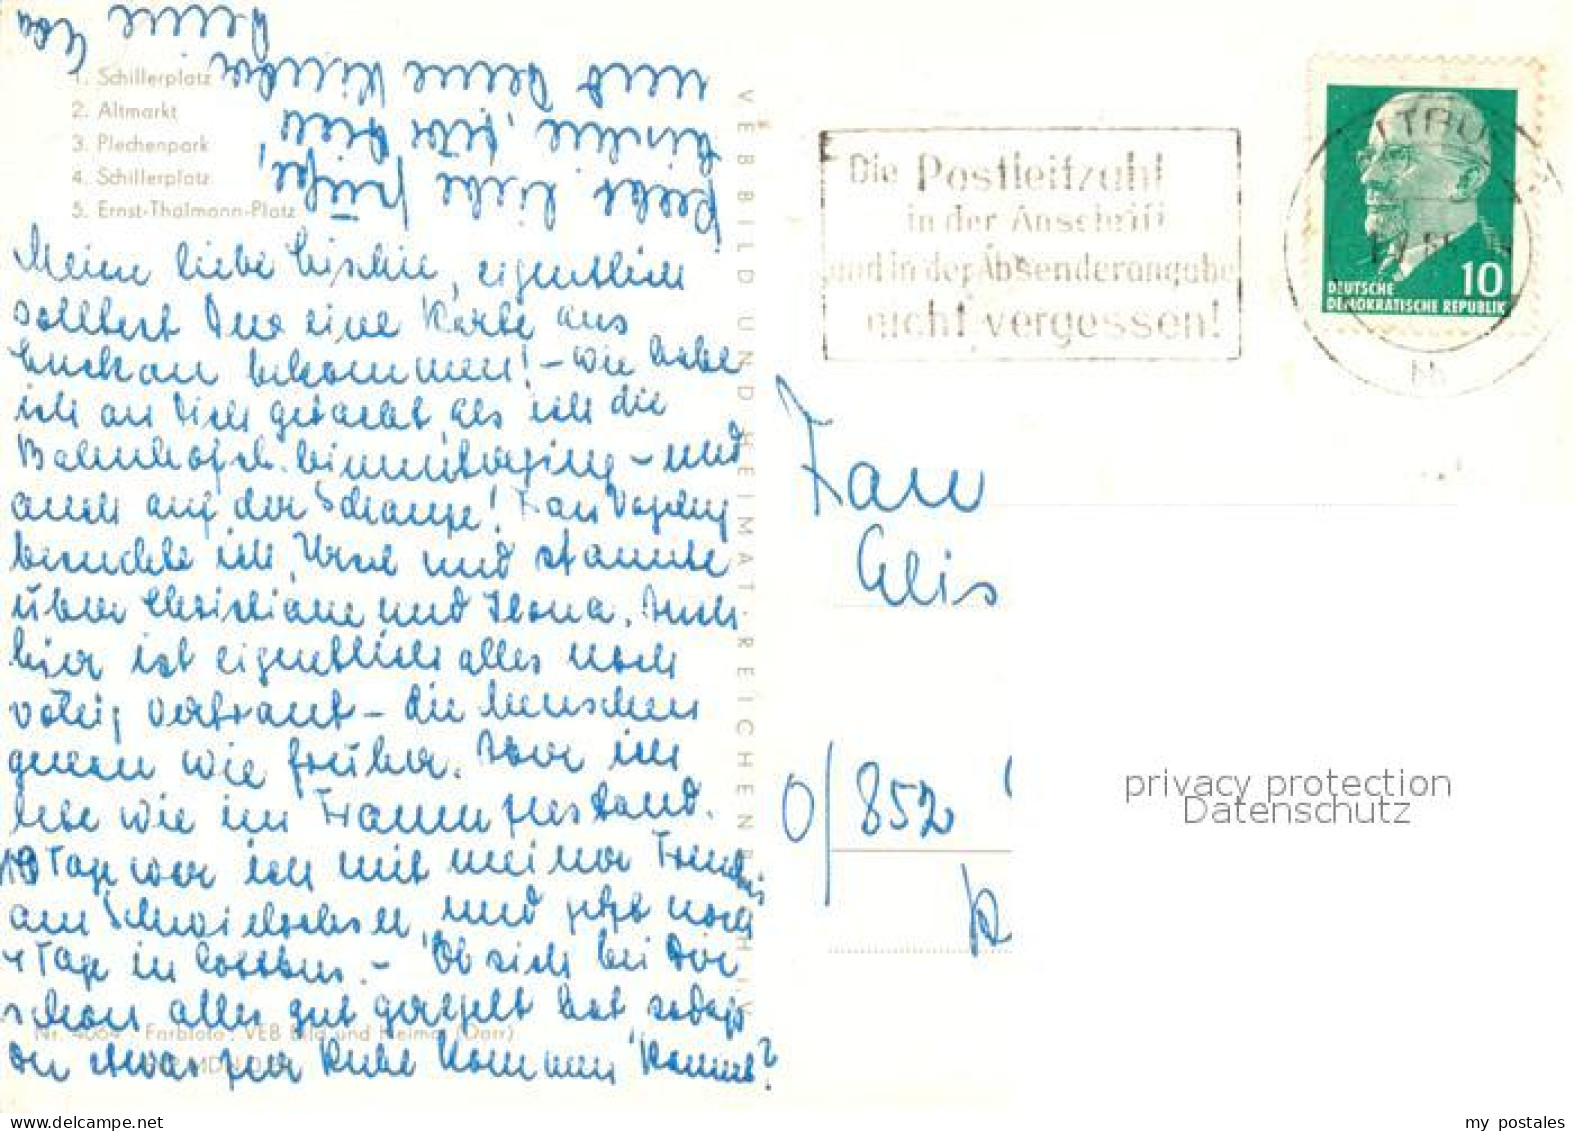 1. Schillerplatz
2. Altmarkt
3. Plechenpark
4. Schillerplatz
5. Ernst-Thälmann-Platz
Meine liebe eigentlich
solltest Du eine Karte aus
bekommen! – wie habe
ich an Dich gedacht, als ich die
– und
auch auf der Schanze! Frau
besuchte ich, Ursel und staunte
über Christiane und Ilona. Auch
hier ist eigentlich alles noch
völlig vertraut – die Menschen
genau wie früher. Aber ich
lebe wie im Traumzustand.
Tage war ich mit meiner Freundin
am Schwielochsee, und jetzt noch
4 Tage in Cottbus. – Ob sich bei Dir
schon alles gut geregelt hat, sodaß
Du etwas zur Ruhe kommen kannst?
Recht liebe Grüße,
Dir
und Deine Kinder
Deine
Eva
Nr. 4064 · Farbfoto: VEB Bild und Heimat (Darr)
VEB BILD UND HEIMAT · REICHENBACH I. V.
Die Postleitzahl
in der Anschrift
und in der Absenderangabe
nicht vergessen!
10
DEUTSCHE
DEMOKRATISCHE REPUBLIK
Frau
Elis
O/852
privacy protection
Datenschutz
www.delcampe.net
my_postales